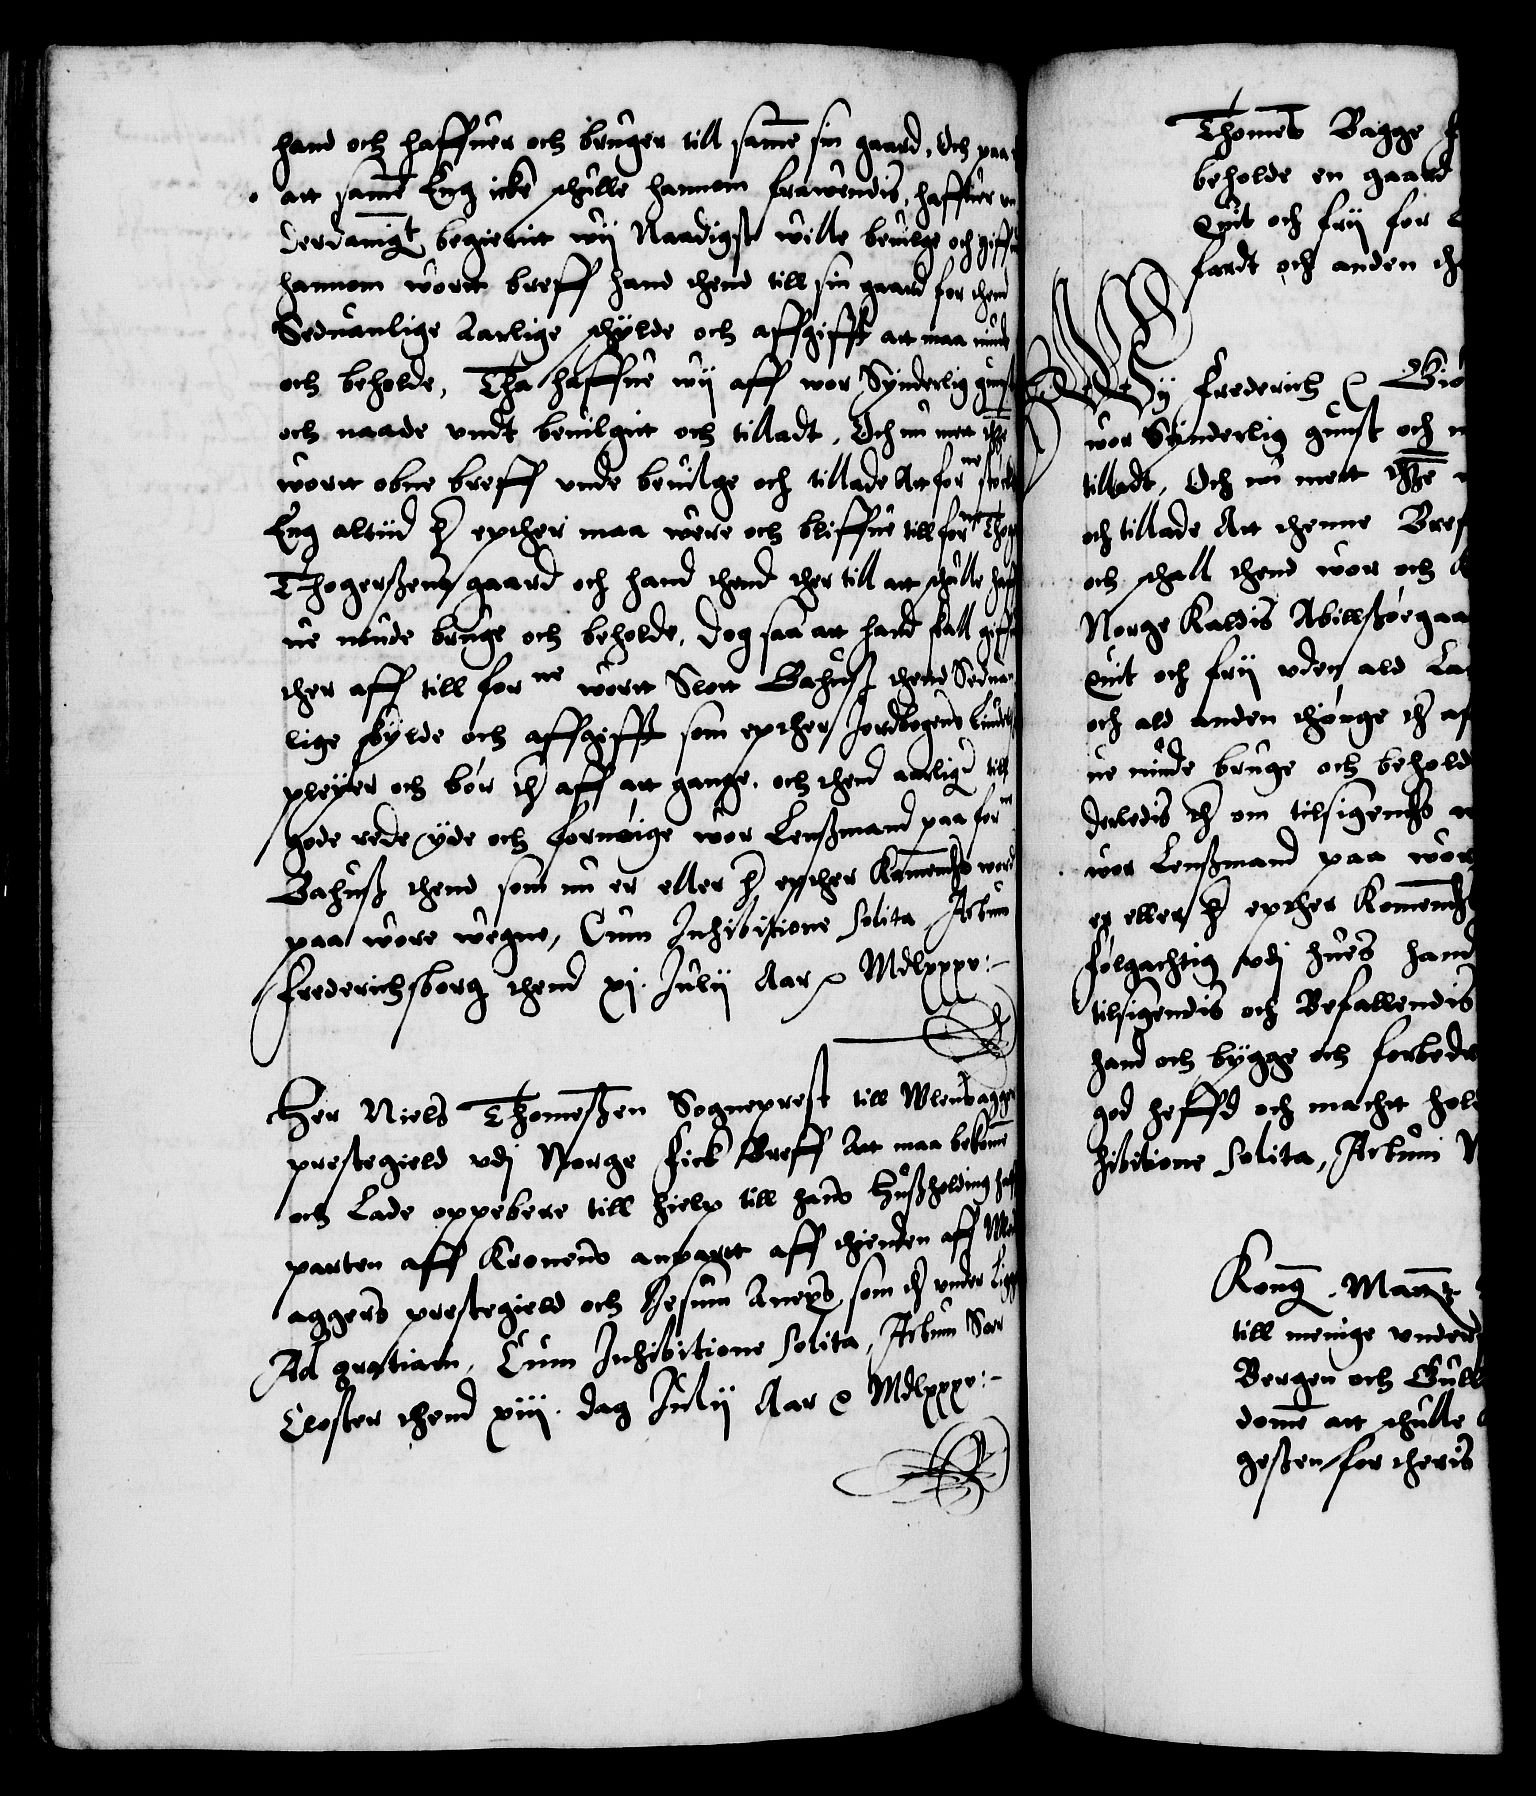 hand och haffuer och bruger till same sin gaard, Och paa
att same Eng icke schulle hannom frawendis, haffuer un
derdanigt begierit wij Naadigst wille beuilge och giffue
hannom wortt breff hand thend till sin gaard for thend
Seduanlige Aarlige schylde och affgifft att maa niude
och beholde, Tha haffue wij aff wor Synderlig gunst
och naade vndt beuilgitt och tilladt, Och nu mett thette
wortt obne breff vnde beuilge och tillade Att forne støcke
Eng altiid her epther maa were och bliffue till forne Thoger
Thogerßens gaard och hand thend ther till att schulle haff
ue niude bruge och beholde, Dog saa att hand skall giffue
ther aff till forne wortt Slott Bahuß thend Seduan
lige skylde och affgifft som epther Jordbogens liudelse
pleyer och bør ther aff att gange, och thend aarligen till
gode rede yde och fornøige wor Lenßmand paa forne
Bahuß thend som nu er eller her epther Kommendis word
paa wore wegne, Cum Inhibitione Solita Actum
Frederichsborg thend xj. Julij Aar &c Mdlxxxv:-
Her Niels Thomeßen Sogneprest till Wlensagger
prestegield vdj Norge Fick Breff Att maa bekome
och Lade oppebere till hielp till hans Hußholding half
parten aff Kronens anpartt aff thienden aff Wlens
aggers prestegield och Hesum Anexs, som ther under Ligger
Ad gratiam, Cum Inhibitione Solita, Actum Soer
Closter thend xiij. dag Julij Aar &c Mdlxxxv:-
Thomes Bagge
beholde en gaard
Quit och frij for
fardt och anden
Wij Frederich &c Giø
wor Synderlig gunst och
tilladt, Och nu mett thette
och tillade Att thenne Breff
och schall thend wor och
Norge Kaldis Abillßøegaa
quit och frij uden ald
och ald anden thønge
ue niude bruge och behold
derledis ther om tilsigendis
wor Lenßmand paa wor
er eller her epther Komend
følgachtig vdj hues hand
tilsigendis och Befallendis
hand och bygge och forbedre
god heffd och magtt hold
hibitione Solita, Actum
Kong. Matt
till menige under
Bergen och Gull
dome att schulle
geßen for theris